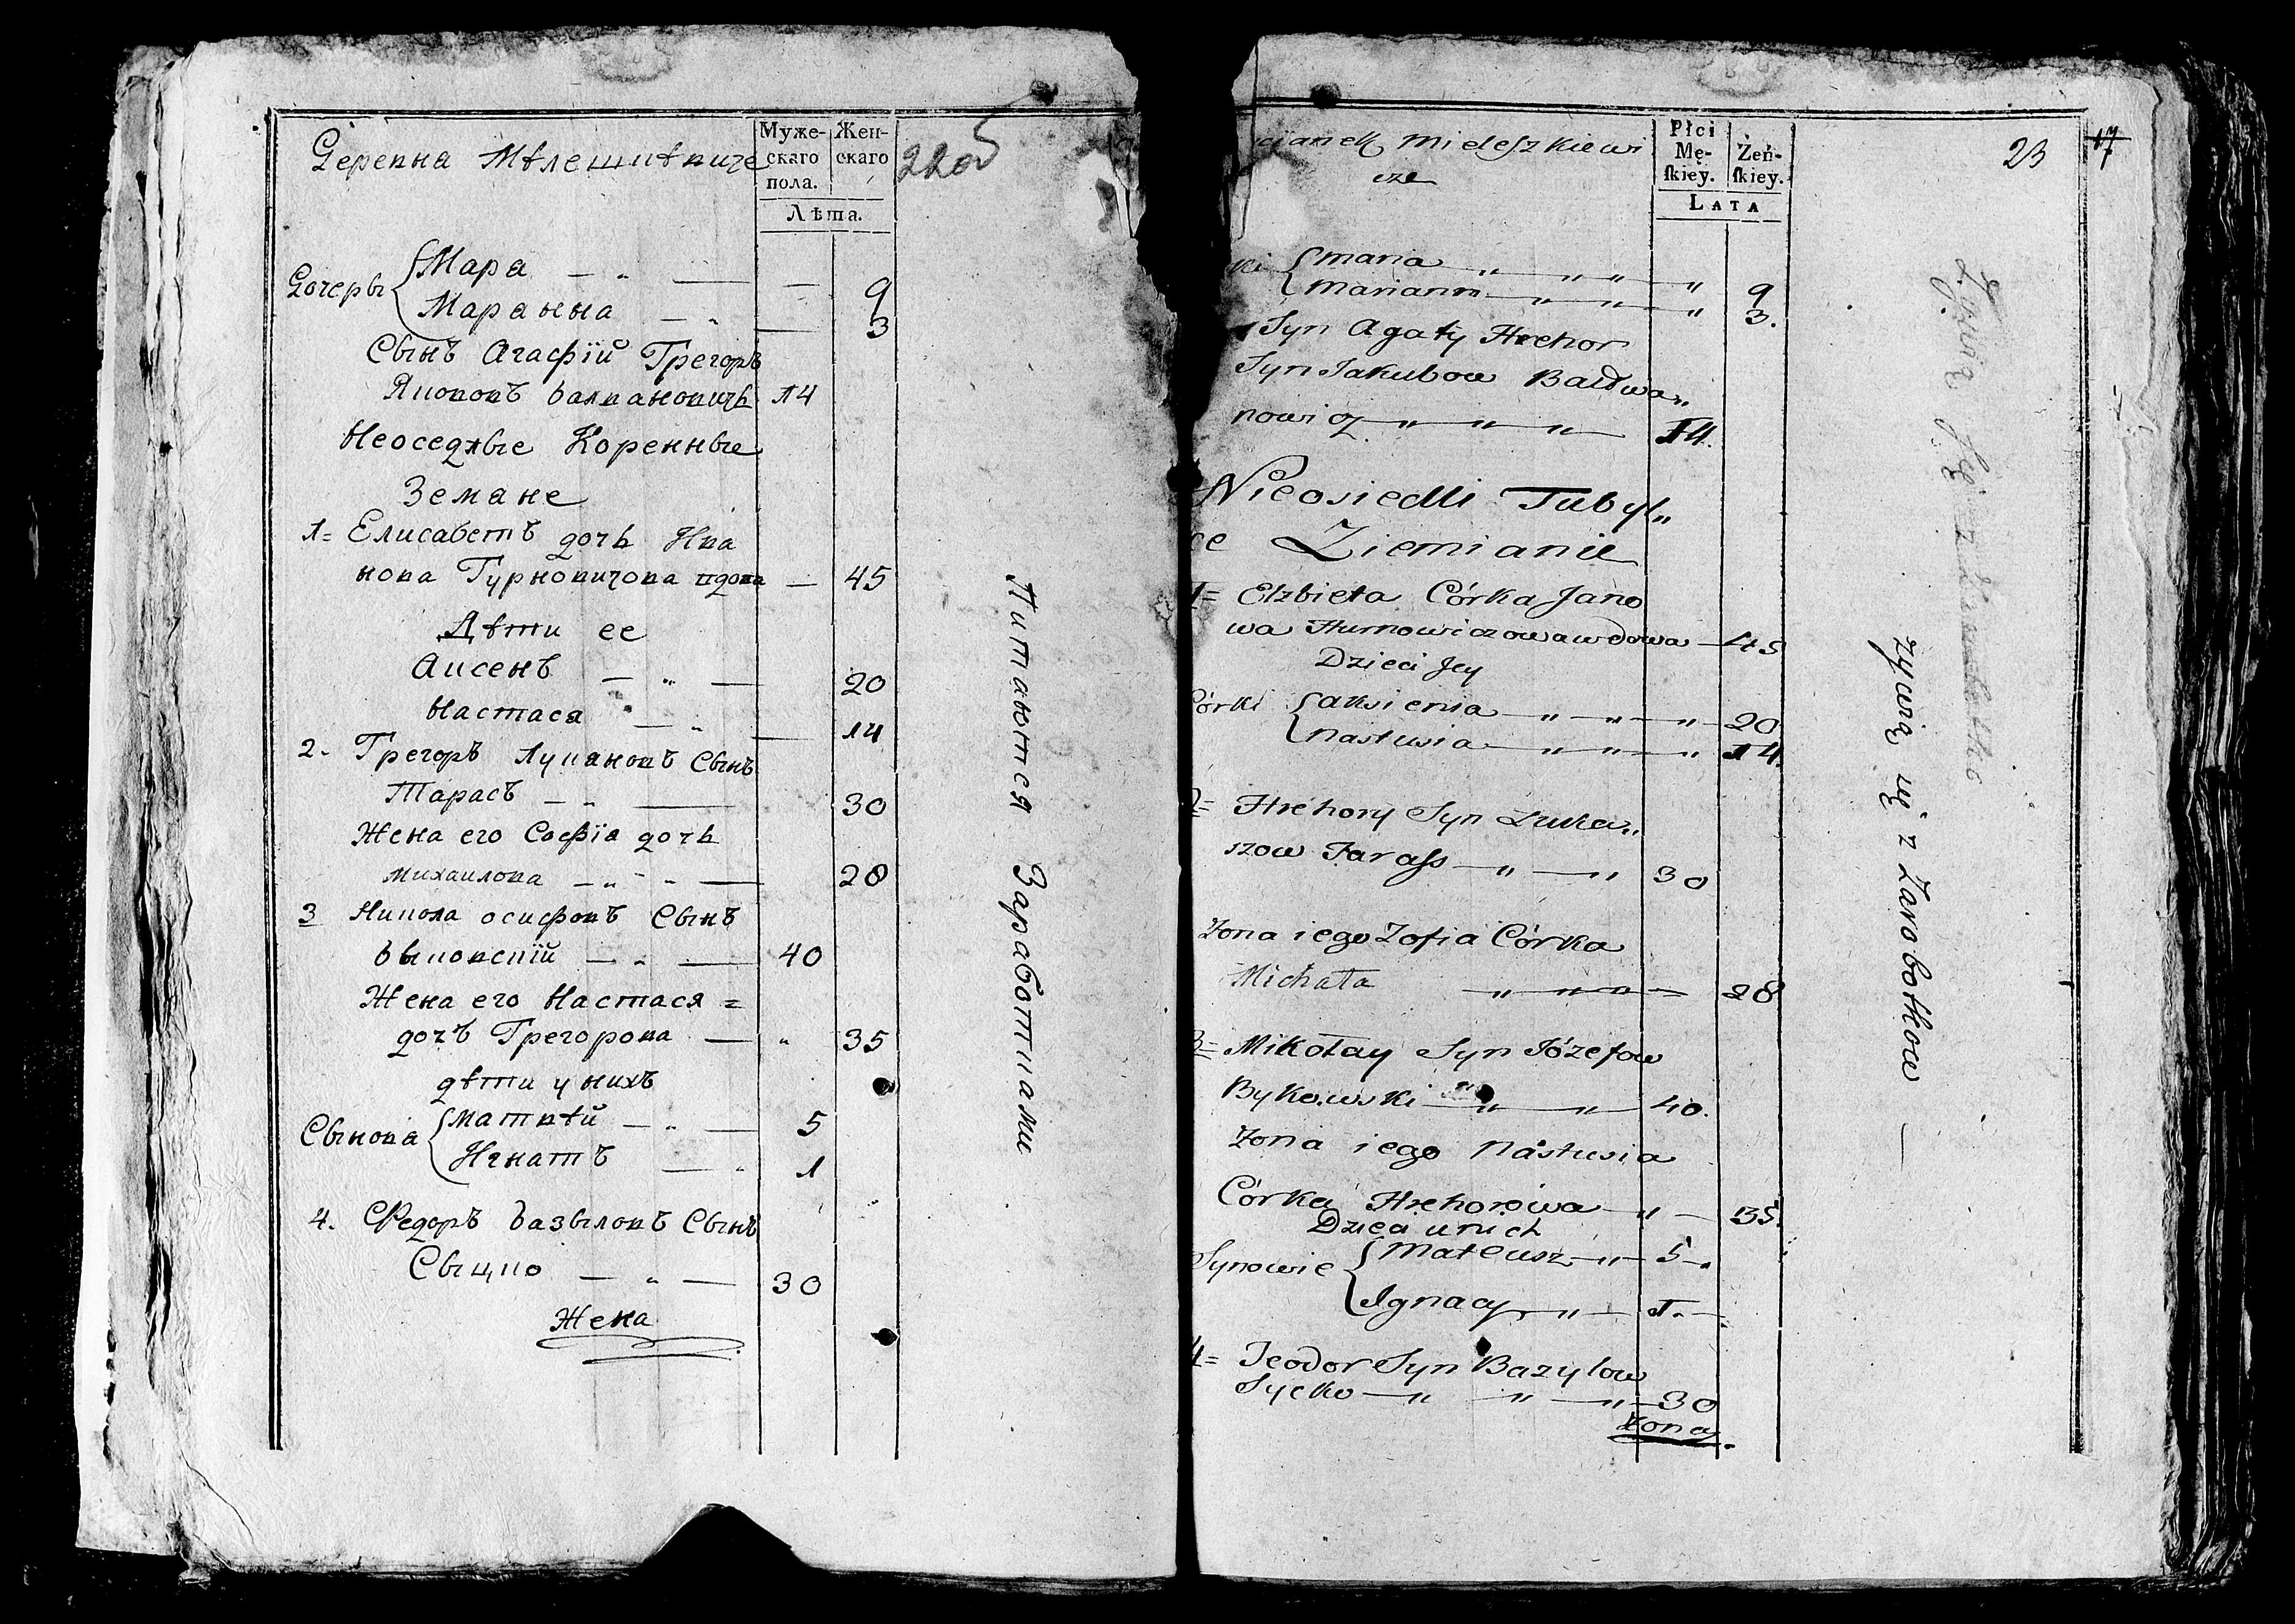 Деревна Мѣлешкѣвиче
Муже-
скаго
пола.
Жен-
скаго
Лѣта.
Дочеры
Мара — „ — — 9
Маранна — „ — 3
Сынъ Агафїи Грегоръ
Якововъ Балвановичъ 14
Неоседлые Коренные
Земане
1= Елисаветъ дочь Ива
нова Гурновичова вдова — 45
Дѣти ее
Аксенъ — „ — 20
Настася — „ — 14
2. Грегоръ Лукановъ Сынъ
Тарасъ — „ — 30
Жена его Софїа дочь
Михаилова — „ — „ — 28
3 Никола осифовъ Сынъ
Быковскїй — „ — 40
Жена его Настася =
дочъ Грегорова — „ 35
дѣти у нихъ
Сынова
Матвѣй — „ — 5
Игнатъ — „ 1
4. Федоръ Базыловъ Сынъ
Сыцко — „ — 30
Жена
Питаются Заработками
cianek Mieleszkiewi
cze
Płci
Mę-
ſkiey.
Żeń-
ſkiey.
LATA
23
17
ki
Maria „ — „ — „ — „ 9
Mariann — „ — „ — „ 3.
Syn Agaty Hrehor
Syn Jakubow Bałwa„
nowicz — „ — „ — „ — 14.
Nieosiedli Tubyl„
ce Ziemianie
1= Elzbieta Córka Jano
wa Hurnowiczowa wdowa — 45
Dzieci Jey
Córki
aksienia — „ — „ — „ — 20
nastusia — „ — „ — „ 14.
2= Hrehory Syn Łuka„
szow Tarass — „ — „ 30
Żona iego Zofia Córka
Michała „ — „ — „ — 28
3= Mikołay Syn Józefow
Bykowski — „ — „ — 40.
Żona iego Nastusia
Córka Hrehorowa — „ — 35.
Dzieci u nich
Synowie
Mateusz — „ — 5 — „
Ignacy — „ — 1. —
4= Teodor Syn Bazylow
Sycko — „ „ — „ — 30
Żona.
żywią się z Zarobotkow —